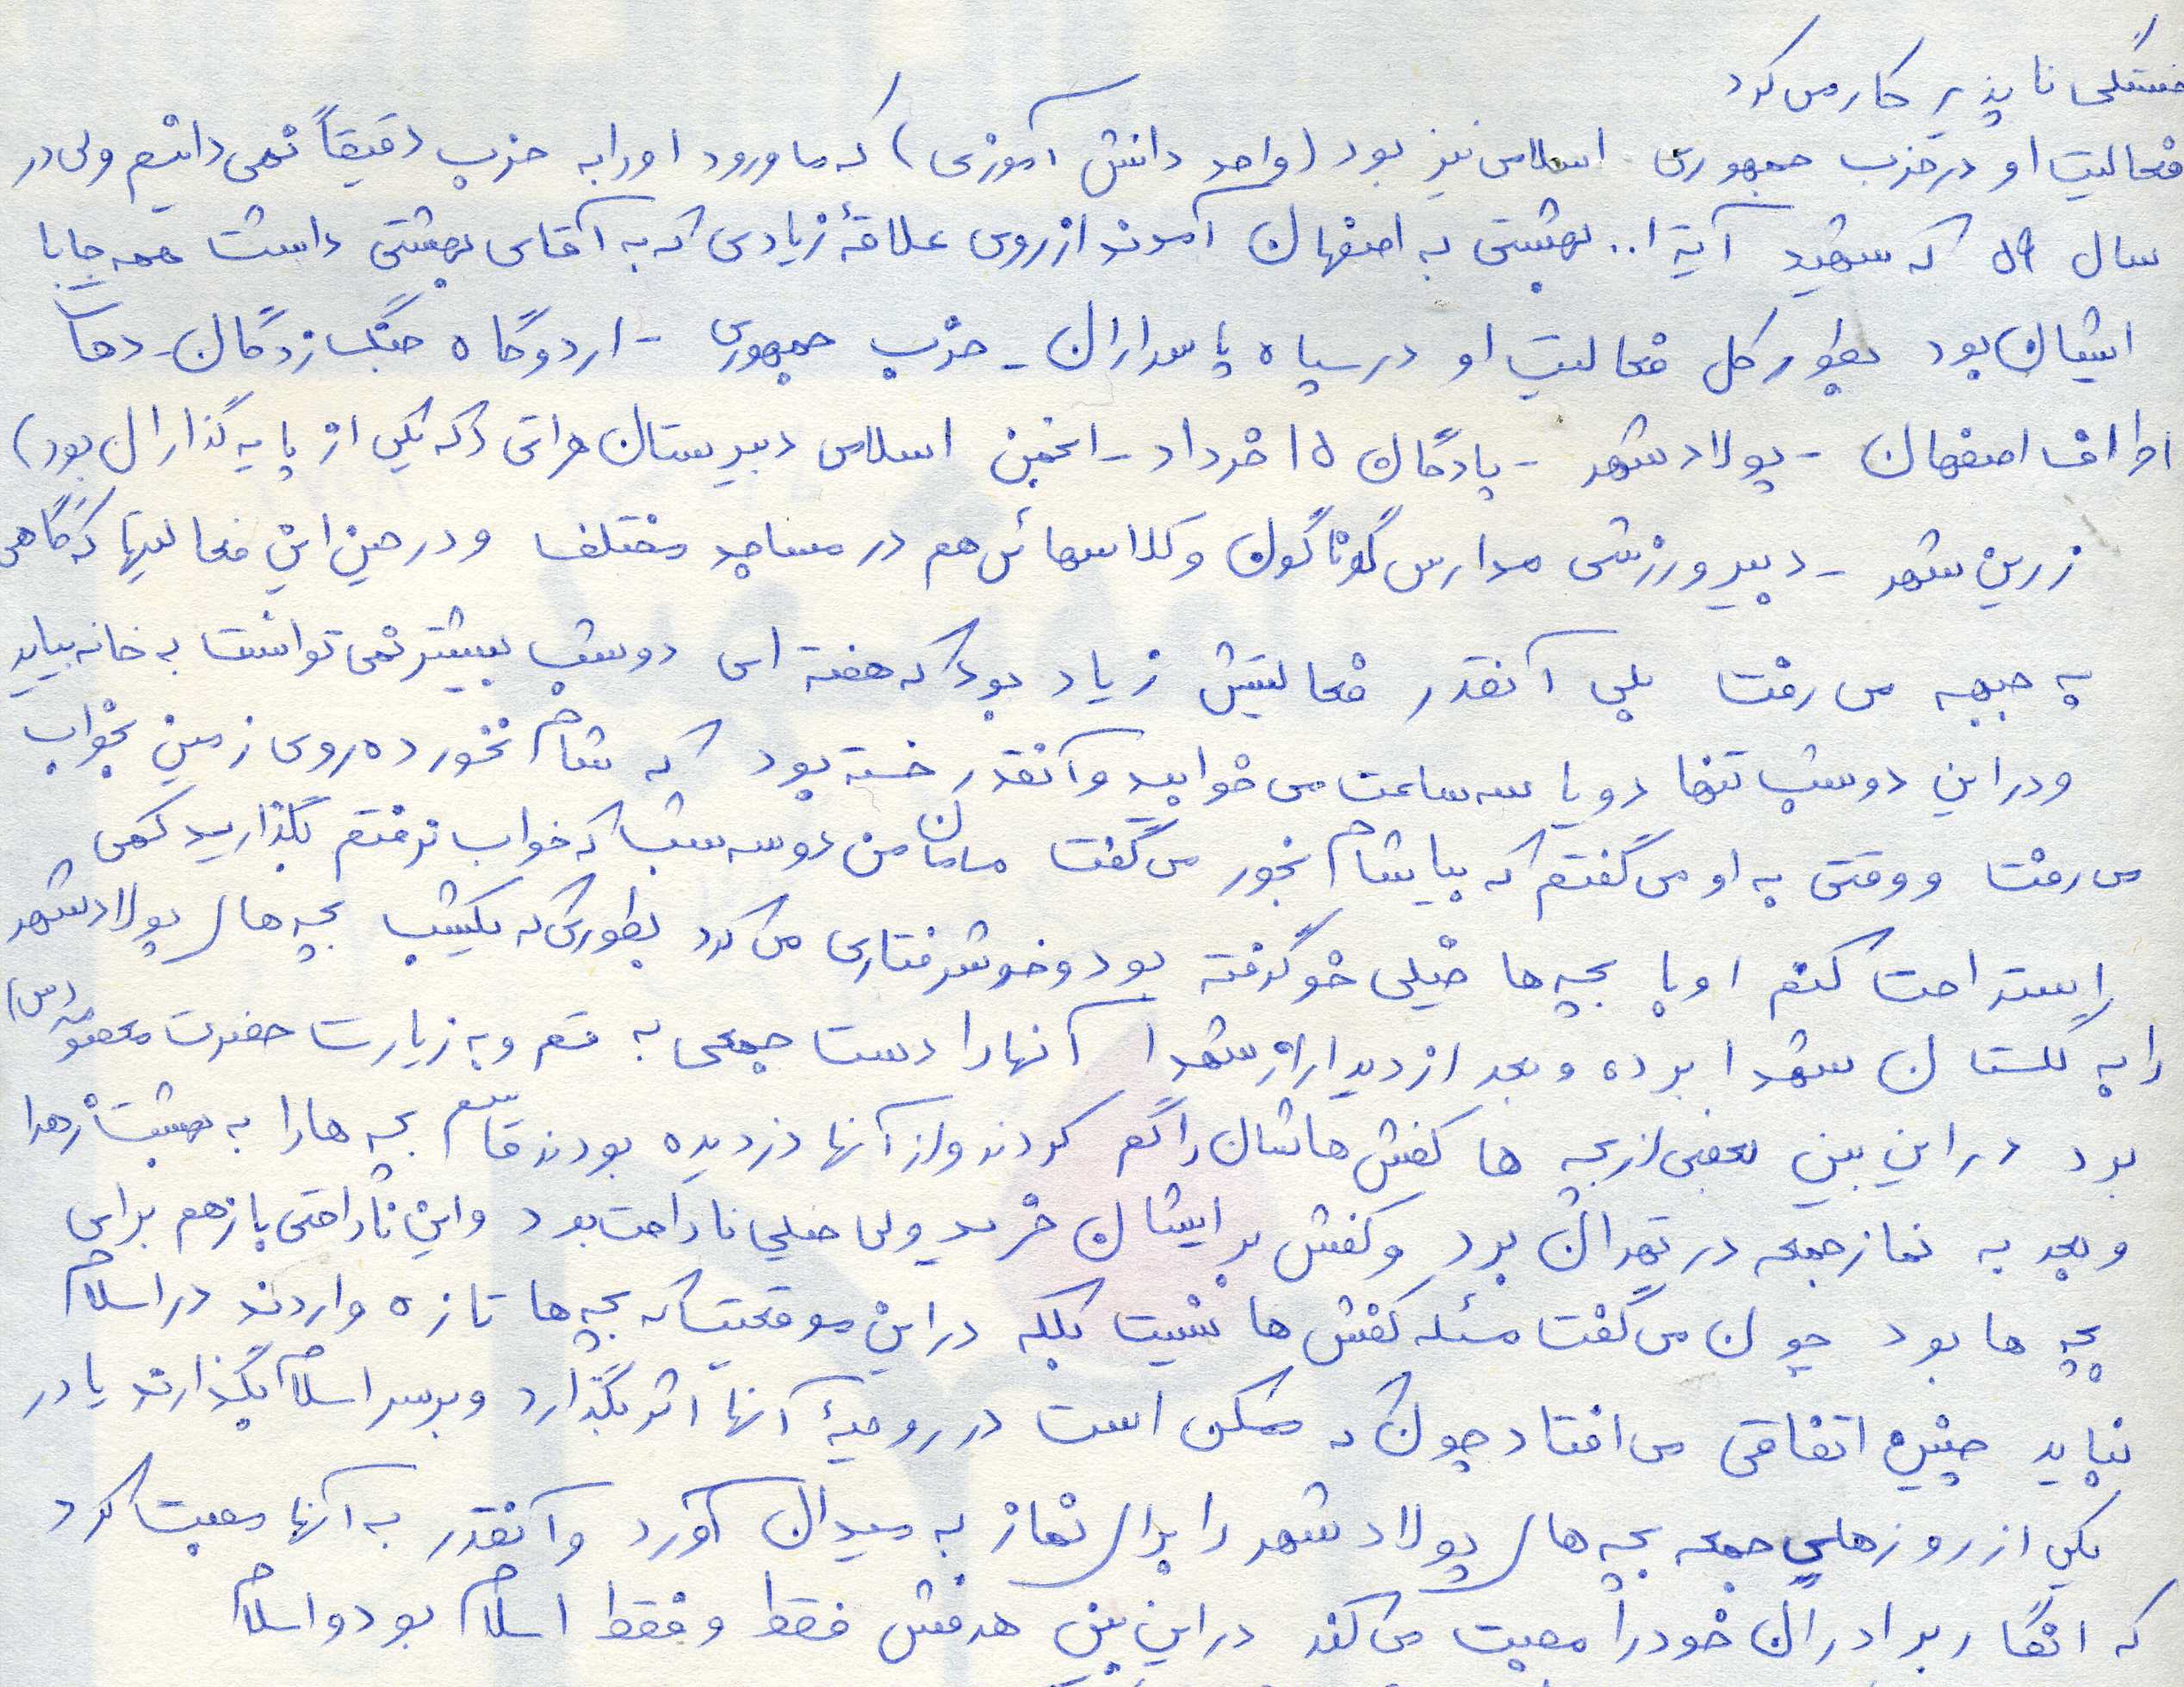 خستگی ناپذیر کار می کرد
فعالیت او در حزب جمهوری اسلامی نیز بود (واحد دانش آموزی) که ما ورود او را به حزب دقیقاً نمی دانیم ولی در
سال ۵۹ که شهید آیة ا.. بهشتی به اصفهان آمدند از روی علاقهٔ زیادی که به آقای بهشتی داشت همه جا با
ایشان بود بطور کل فعالیت او در سپاه پاسداران - حزب جمهوری - اردوگاه جنگ زدگان - دهات
اطراف اصفهان - پولاد شهر - پادگان ۱۵ خرداد - انجمن اسلامی دبیرستان هراتی (که یکی از پایه گذاران بود)
زرین شهر - دبیر ورزش مدارس گوناگون و کلاسهائی هم در مساجد مختلف و در حین این فعالیتها که گاهی
به جبهه می رفت بلی آنقدر فعالیتش زیاد بود که هفته ای دو شب بیشتر نمی توانست به خانه بیاید
و در این دو شب تنها دو یا سه ساعت می خوابید و آنقدر خسته بود که شام نخورده روی زمین بخواب
می رفت و وقتی به او می گفتم که بیا شام بخور می گفت مامان من دو سه شب که خواب نرفتم بگذارید کمی
استراحت کنم او با بچه ها خیلی خو گرفته بود و خوشرفتاری می کرد بطوری که یکشب بچه های پولاد شهر
را به گلستان شهدا برده و بعد از دیدار از شهدا آنها را دست جمعی به قم و به زیارت حضرت معصومه (س)
برد در این بین بعضی از بچه ها کفش هاشان را گم کردند و از آنها دزدیده بودند قاسم بچه ها را به بهشت زهرا
و بعد به نماز جمعه در تهران برد و کفش برایشان خرید ولی خیلی ناراحت بود و این ناراحتی باز هم برای
بچه ها بود چون می گفت مسئله کفش ها نیست بلکه در این موقعیت که بچه ها تازه واردند در اسلام
نباید چنین اتفاقی می افتاد چون که ممکن است در روحیهٔ آنها اثر بگذارد و بر سر اسلام بگذارند یا در
یکی از روزهای جمعه بچه های پولاد شهر را برای نماز به میدان آورد و آنقدر به آنها محبت کرد
که انگار برادران خود را محبت می کند در این بین هدفش فقط و فقط اسلام بود و اسلام